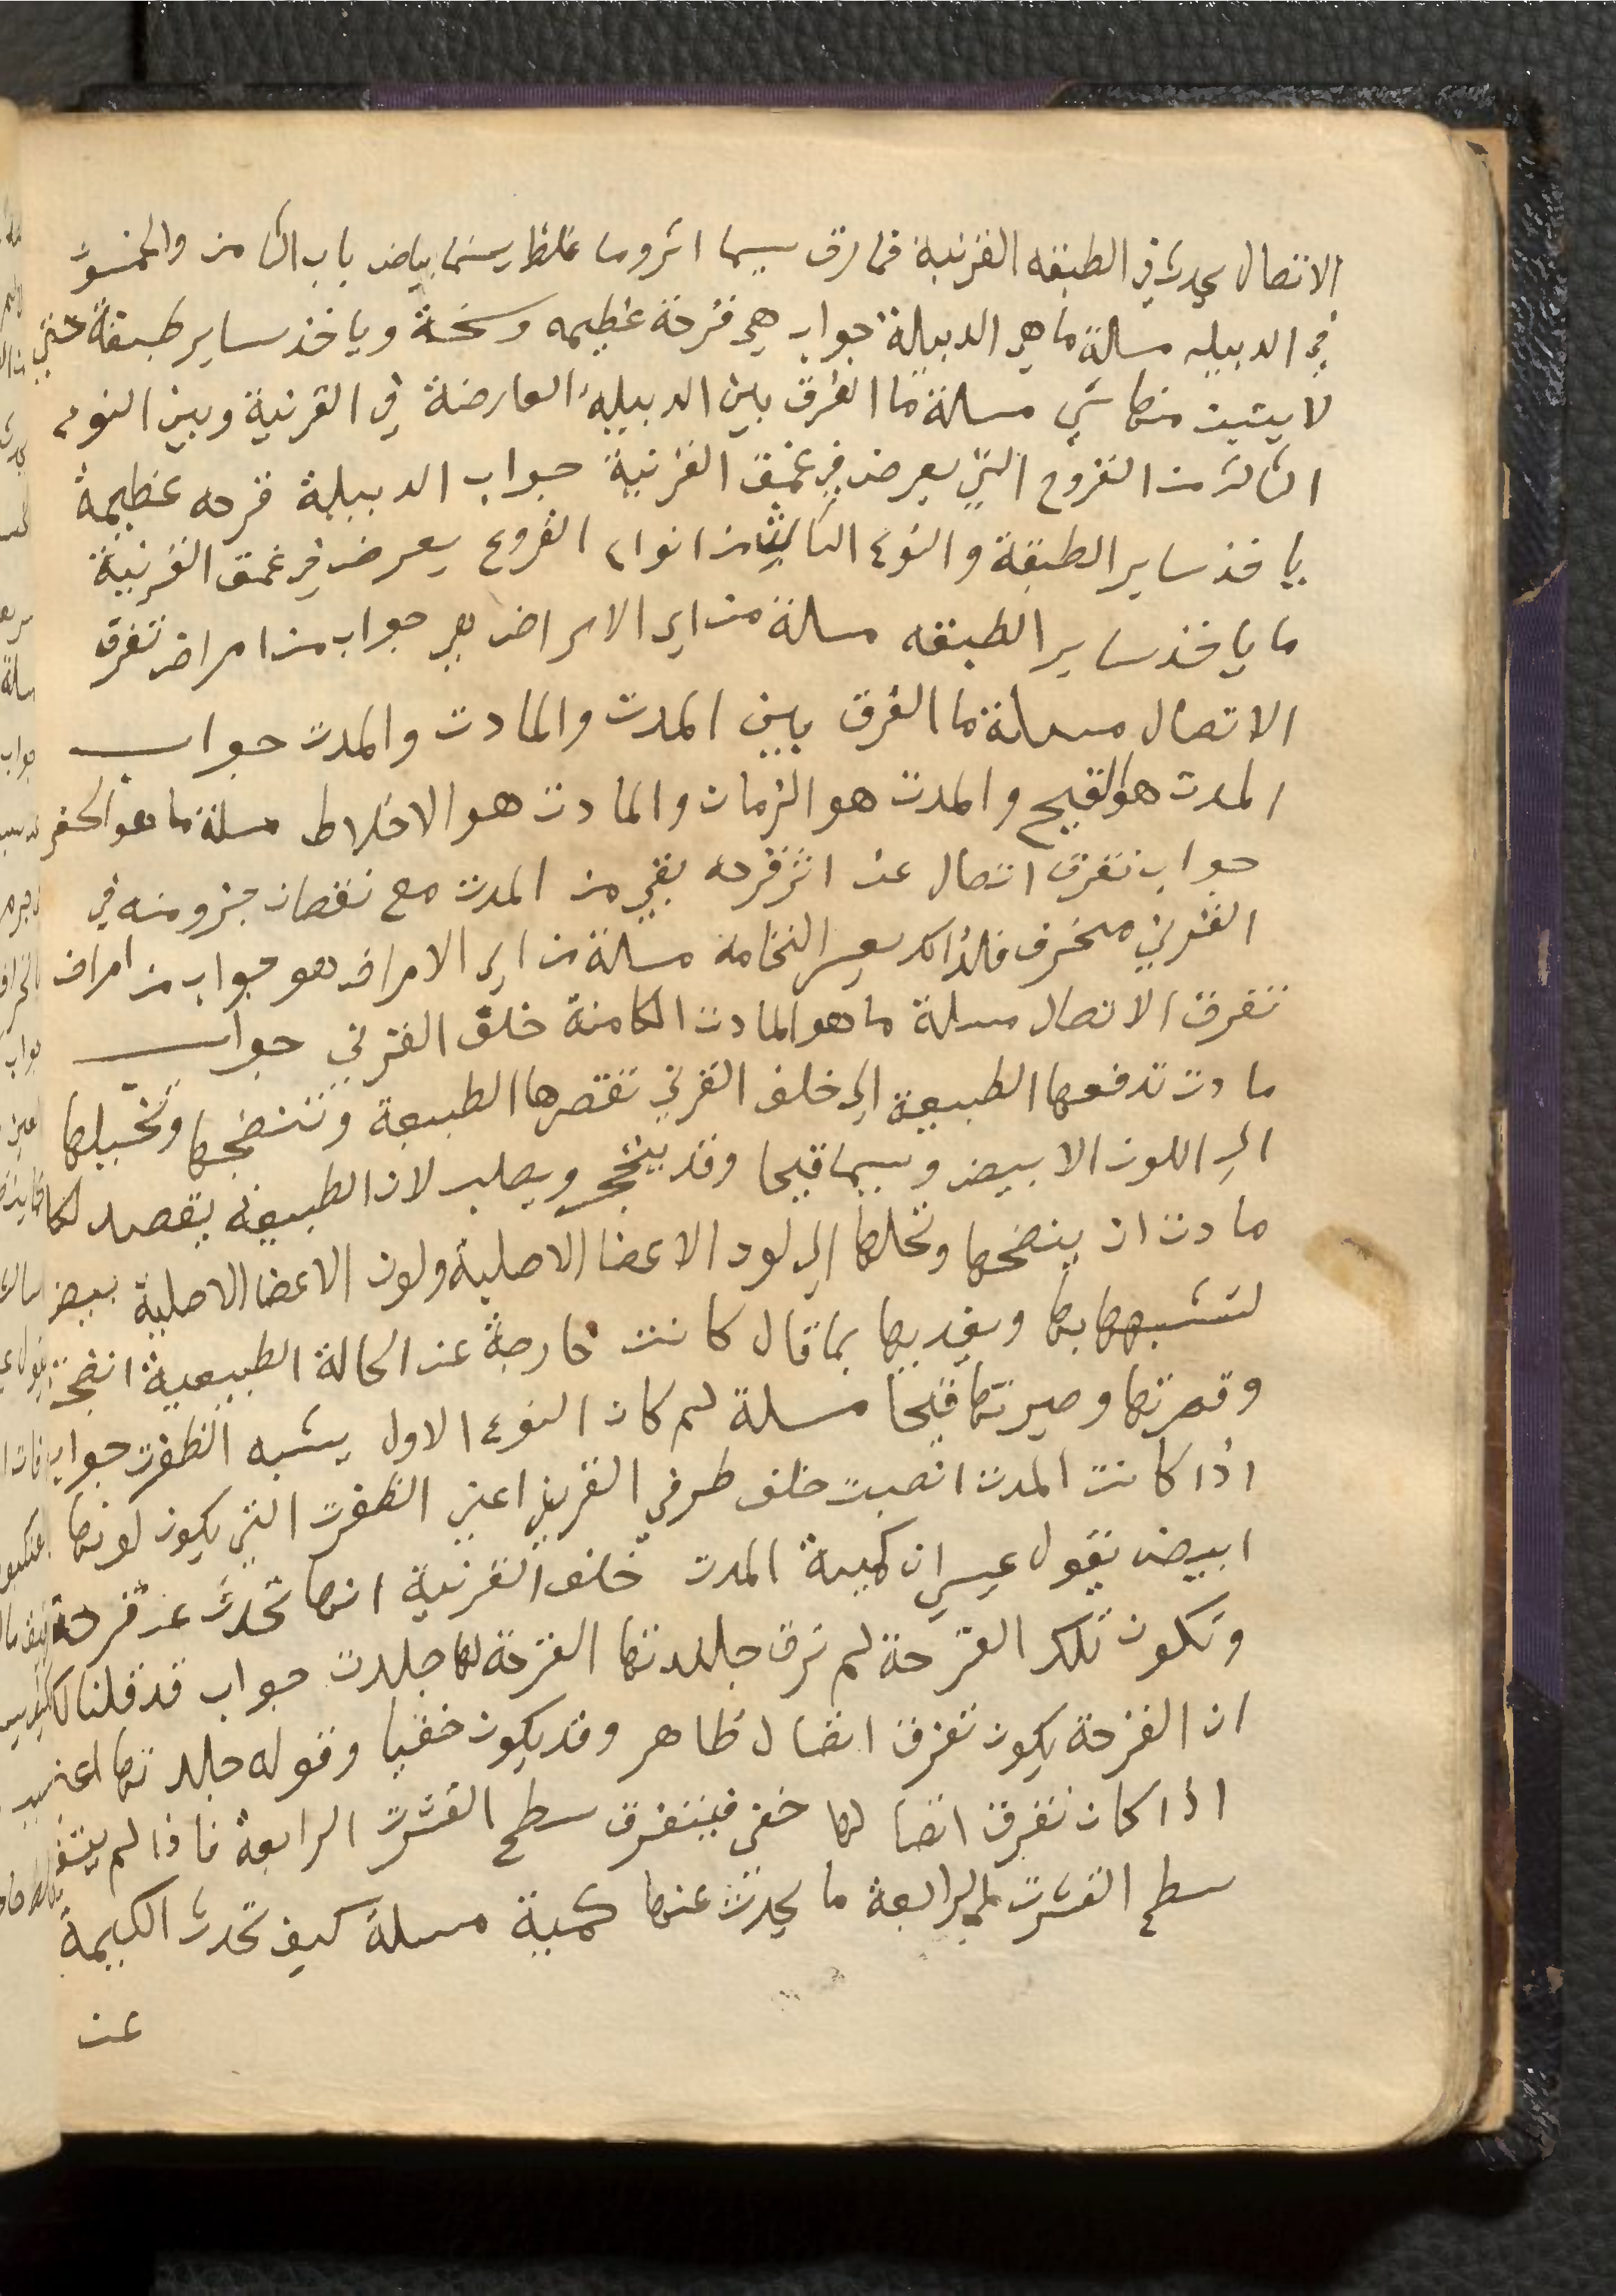 الاتصال يحدث في الطبقه القرنية فمارق يسما اثروما غلظ يسما بياض باب الثامن والخمسون
في الدبيله مسالة ما هي الدبيلة جواب هي قرحة عظيمه وسخة وياخذ ساير طبقة حتي
لا يثبت منها شي مسالة ما الفرق بين الدبيله العارضة في القرنية وبين النوع
الثالث من القروح التي يعرض في عمق القرنية جواب الدبيلة قرحه عظيمة
ياخذ ساير الطبقة والنوع الثالث من انواع القروح يعرض في عمق القرنية
ما ياخذ ساير الطبقه مسالة من اي الامراض هي جواب من امراض تفرق
الاتصال مسالة ما الفرق بين المدت والمادت والمدت جواب
المدت هو القيح والمدت هو الزمان والمادت هو الاخلاط مسلة ما هو الحفر
جواب تفرق اتصال عن اثر قرحه بقي من المدت مع نقصان جزو منه في
القرني منخرف فلذالك يعسر النخامة مسالة من اي الامراض هو جواب من امراض
تفرق الاتصال مسلة ما هو المادت الكامنة خلف القرني جواب
مادت تدفعها الطبيعة الي خلف القرني تقصرها الطبيعة وتنضجها وتحيلها
الي اللون الابيض ويسما قيحا وقد ينحجر ويصلب لان الطبيعة يقصد
مادت ان ينضجها وتحلها الي لون الاعضا الاصلية ولون الاعضا الاصلية بيض
لتشبهها بها ويغديها بما قال كانت خارجة عن الحالة الطبيعية انضجة
وقهرتها وصيرتها قيحا مسلة لم كان النوع الاول يشبه الظفرت جواب
اذا كانت المدت انصبت خلف طرفي القرني اعني الظفرت التي يكون لونها
ابيض يقول عيسي ان كمية المدت خلف القرنية انها تحدث عن قرحة
وتكون تلك القرحة لم ترق جلدتها القرحة لها جلدت جواب قد قلنا
ان القرحة يكون تفرق اتصال ظاهر وقد يكون خفيا وقوله جلدتها اعني
اذا كان تفرق اتصالها خفي فيتفرق سطح القشرت الرابعة فاذا لم يتف
سطح القشرت الرابعة ما يحدث عنها كمية مسلة كيف تحدث الكيمة
عن